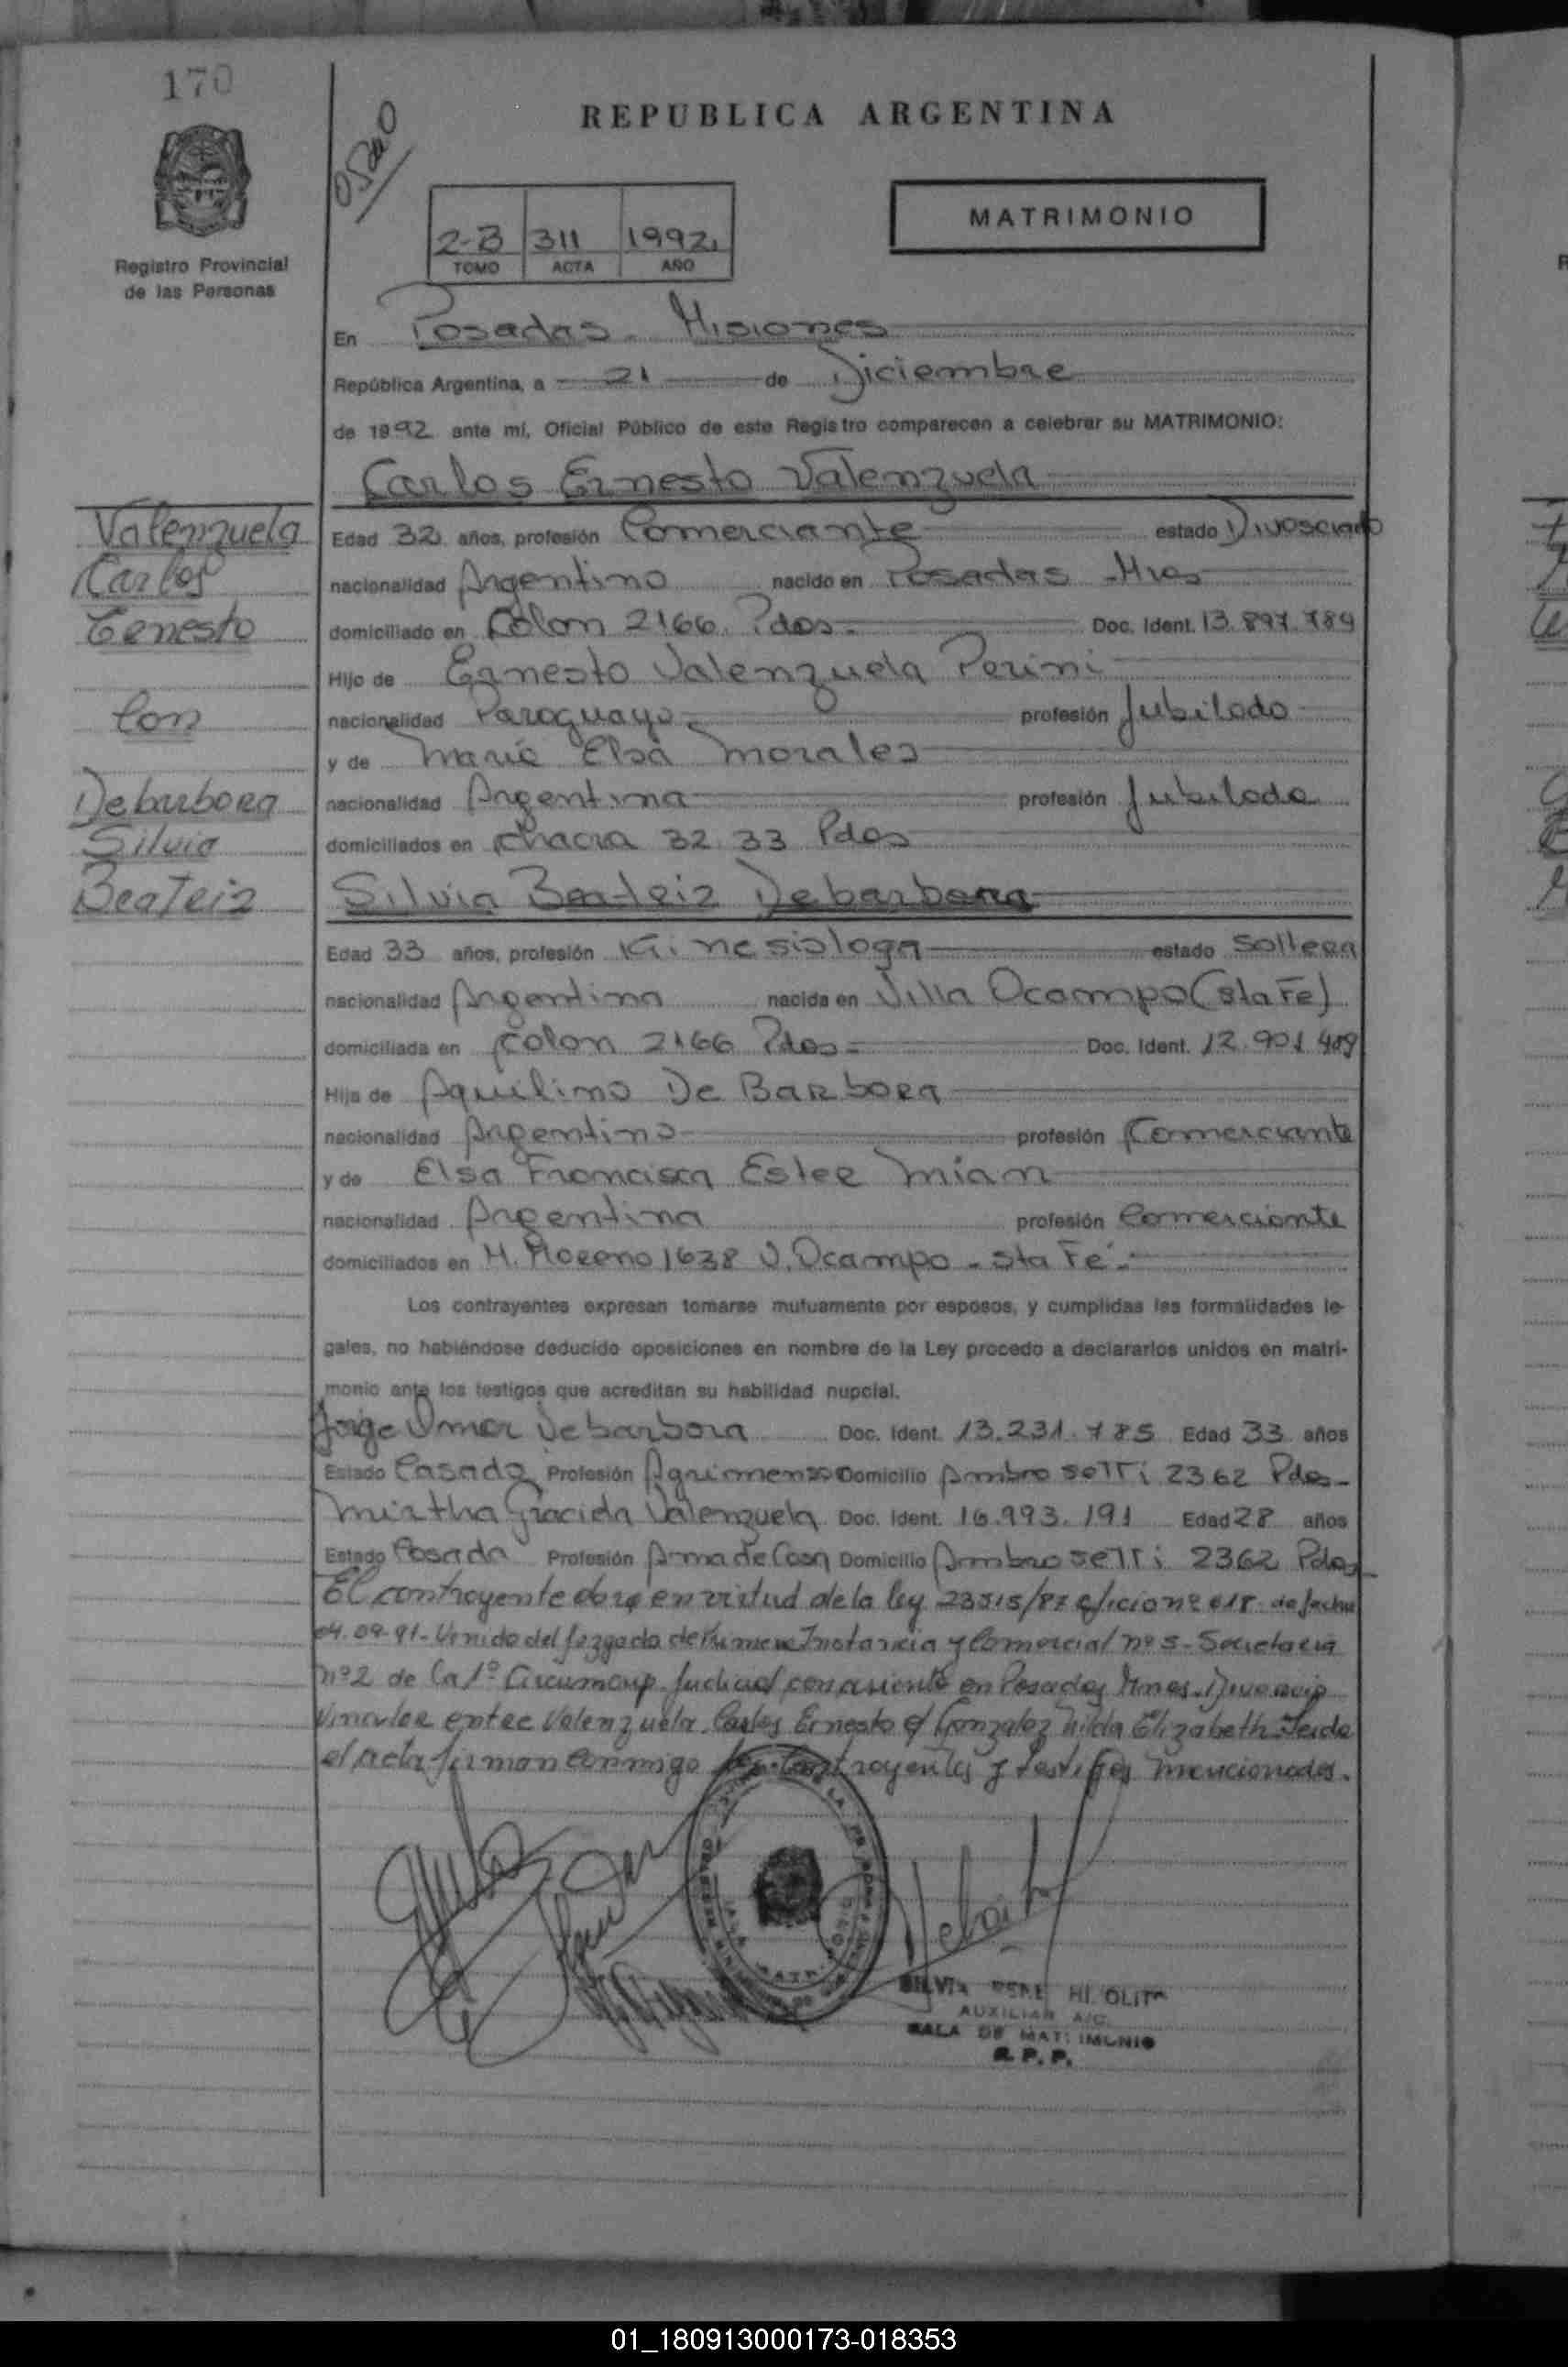 170
REPUBLICA ARGENTINA
2-B 311 1992
TOMO ACTA AÑO
MATRIMONIO
Registro Provincial
de las Personas
En Posadas - Misiones
República Argentina, a 21 de Diciembre
de 1992 ante mí, Oficial Público de este Registro comparecen a celebrar su MATRIMONIO:
Carlos Ernesto Valenzuela
Valenzuela
Carlos
Ernesto
Con
Debarbora
Silvia
Beatriz
Edad 32 años, profesión Comerciante estado Divorciado
nacionalidad Argentino nacido en Posadas - Mnes
domiciliado en Colon 2166 Pdas. Doc. Ident. 13.897.789
Hijo de Ernesto Valenzuela Perini
nacionalidad Paraguayo profesión Jubilado
y de Maria Elsa Morales
nacionalidad Argentina profesión Jubilada
domiciliados en chacra 32 33 Pdas
Silvia Beatriz Debarbora
Edad 33 años, profesión Kinesiologa estado Soltera
nacionalidad Argentina nacida en Villa Ocampo (Sta Fe)
domiciliada en Colon 2166 Pdas Doc. Ident. 12.901.409
Hija de Aquilino De Barbora
nacionalidad Argentino profesión Comerciante
y de Elsa Francisca Ester Mian
nacionalidad Argentina profesión Comerciante
domiciliados en M. Moreno 1638 V. Ocampo - Sta Fé.
Los contrayentes expresan tomarse mutuamente por esposos, y cumplidas las formalidades le-
gales, no habiéndose deducido oposiciones en nombre de la Ley procedo a declararlos unidos en matri-
monio ante los testigos que acreditan su habilidad nupcial.
Jorge Omar Debarbora Doc. Ident. 13.231.785 Edad 33 años
Estado Casado Profesión Agrimensor Domicilio Ambrosetti 2362 Pdas-
Mirtha Graciela Valenzuela Doc. Ident. 16.993.191 Edad 28 años
Estado Casada Profesión Ama de Casa Domicilio Ambrosetti 2362 Pdas
El contrayente obra en virtud de la ley 23515/87 oficio nº 618 de fecha
04.09.91- Venido del Juzgado de Primera Instancia y Comercial nº 5- Secretaria
nº2 de la 1º Circunscrip. Judicial con asiento en Posadas Mnes. Divorcio
Vincular entre Valenzuela Carlos Ernesto c/ Gonzalez Nilda Elizabeth. Leida
el acta firman conmigo los contrayentes y testigos mencionados.
AUXILIAR A/C
SALA DE MATRIMONIO
R.P.P.
01_180913000173-018353